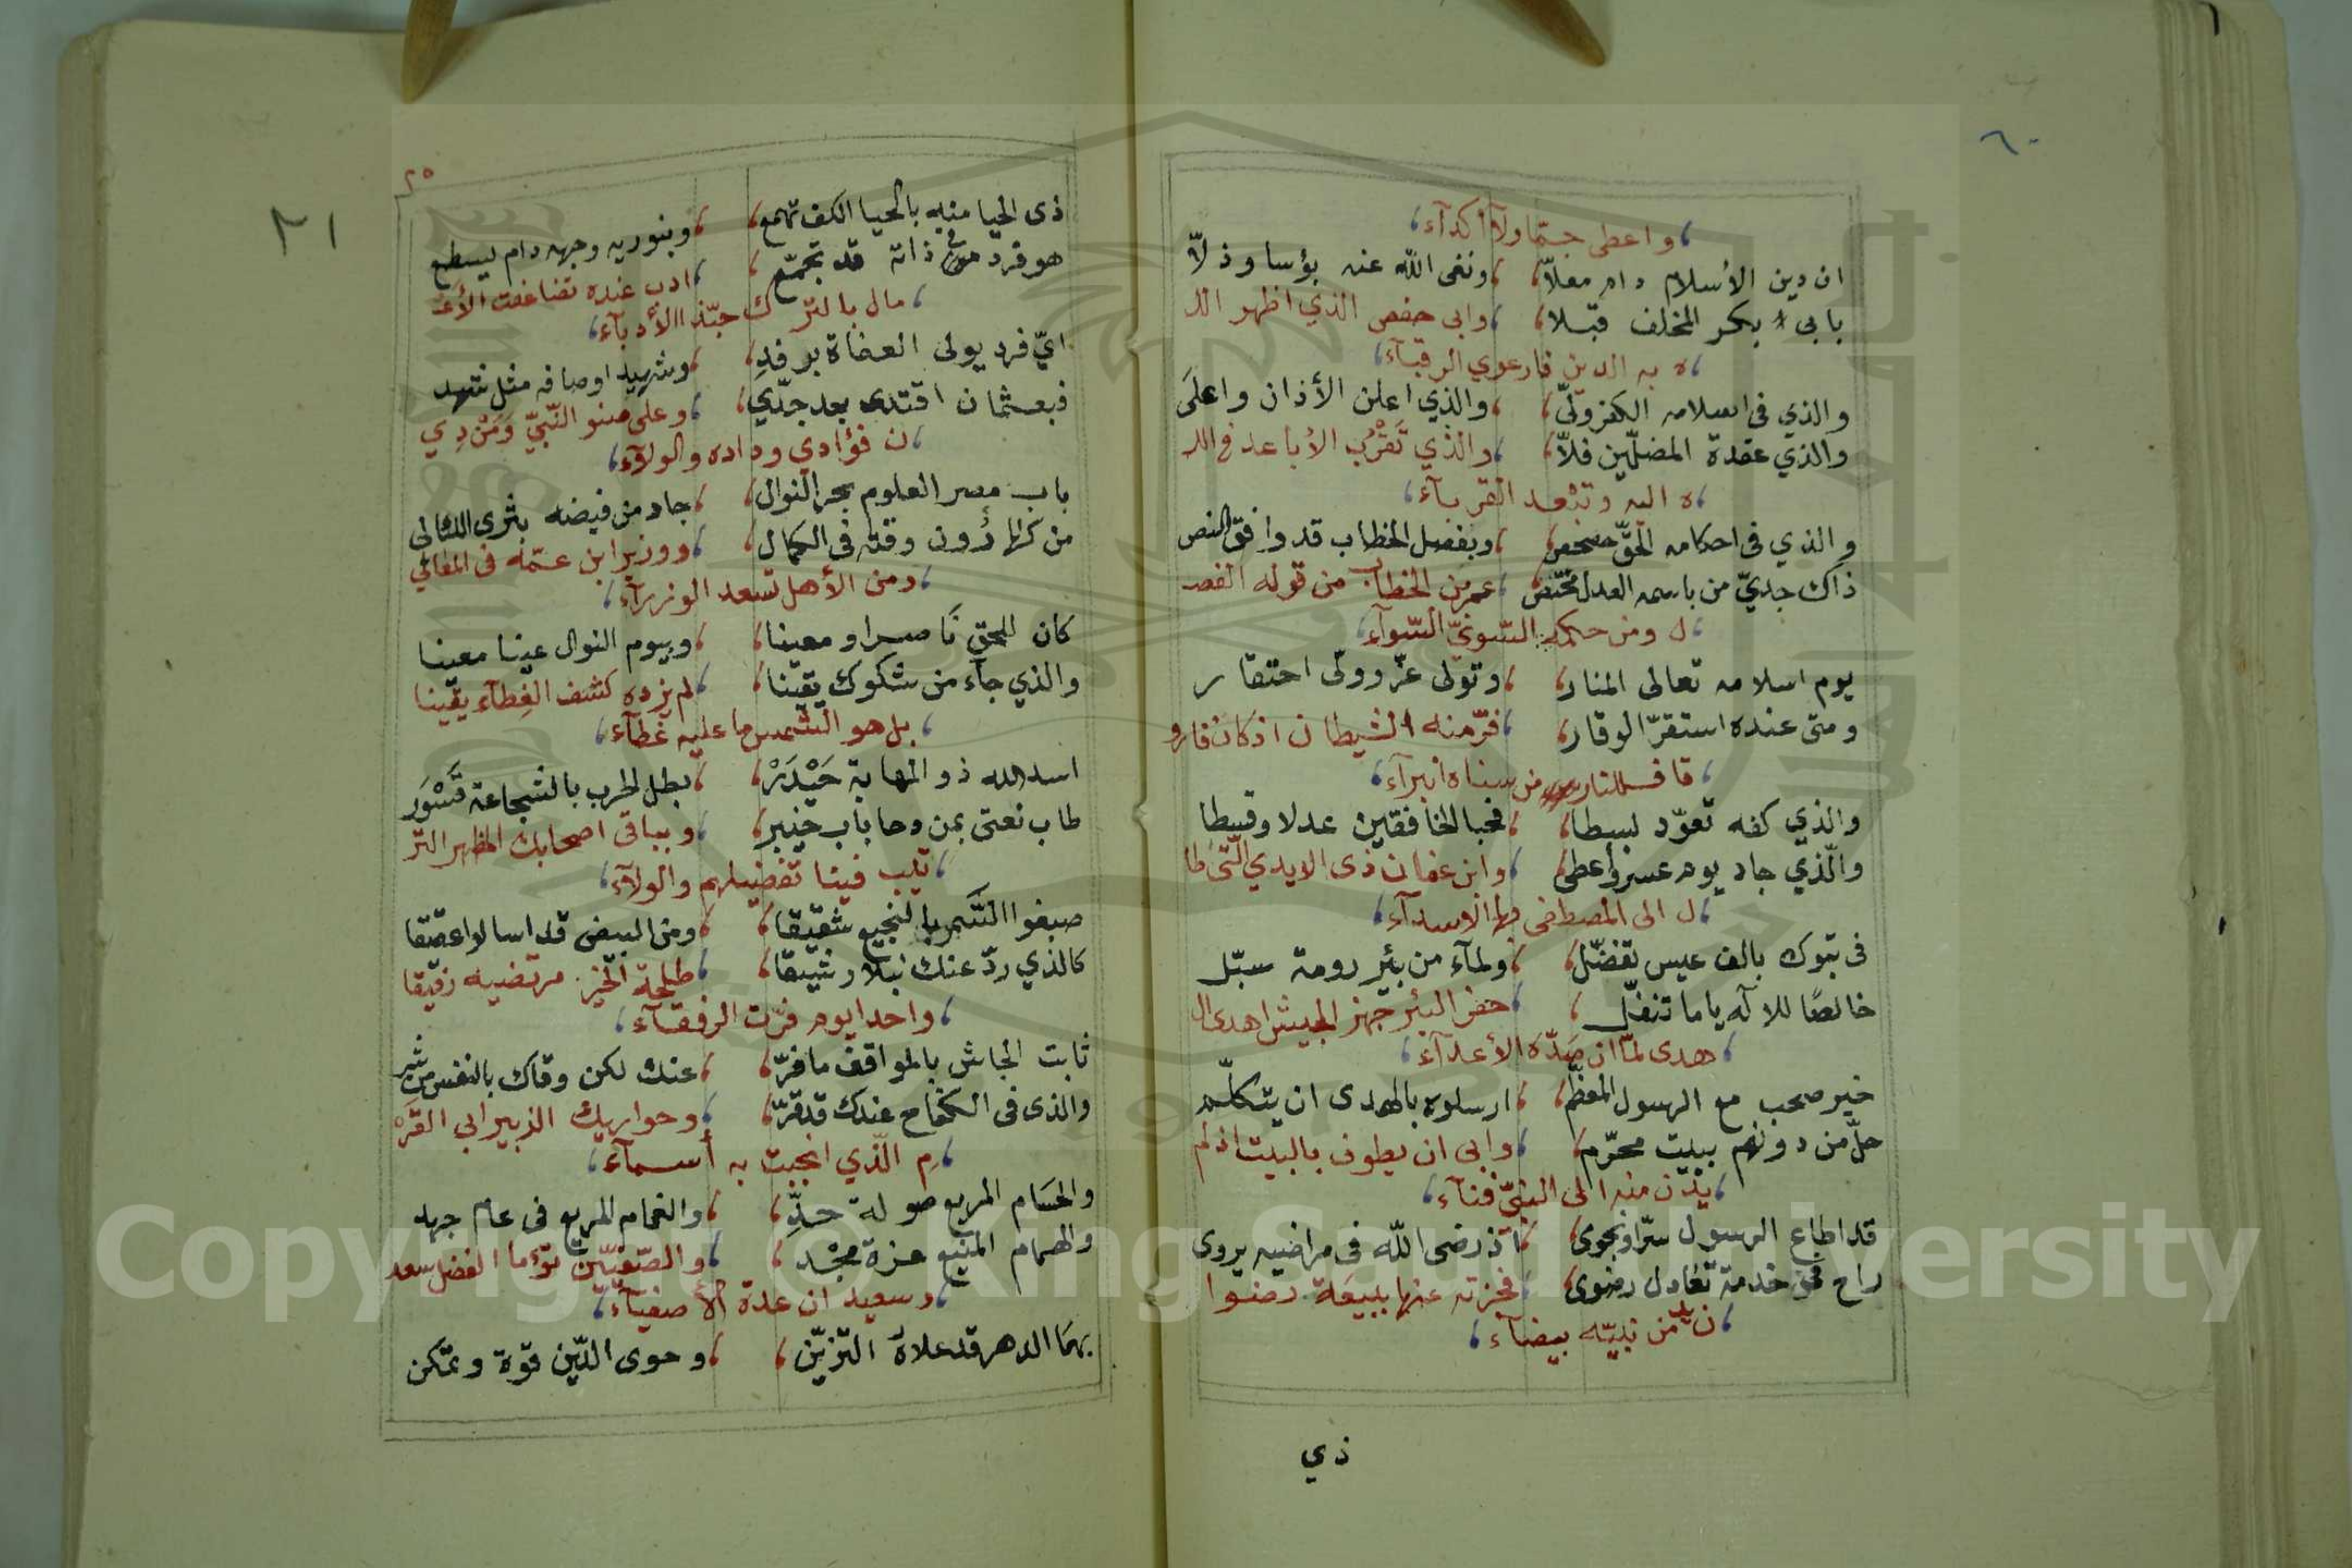 ٦٠
واعطى جمّا ولا أكدآء
ان دين الأسلام دام معلاّ ونفى الله عنه بؤسا وذلاّ
بابى بكر المخلف قبلا وابى حفص الذي اظهر الل
ه به الدين فارعوي الرقبآء
والذي فى اسلامه الكفر ولّى والذي اعلن الأذان واعلَى
والذي عقدة المضلّين فلاّ والذي تَقْرُب الأباعد فى الل
ه اليه وتبعد القربآء
والذي فى احكامه الحقّ حصحص وبفصل الخطاب قد وافق النص
ذاك جديّ من باسمه العدل مختص عمر بن الخطاب من قوله الفصـ
ل ومن حكمه السّويّ السّوآء
يوم اسلامه تعالى المنار وتولى عزّ وولّى احتقار
ومتى عنده استقرّ الوقار فرّ منه الشيطان اذ كان فارو
قا فللنار من سناه انبرآء
والذي كفه تعوّد بسطا فحبا الخافقين عدلا وقسطا
والّذي جاد يوم عسر وأعطى وابن عفان ذى الايدي الّتى طا
ل الى المصطفى بها الاسدآء
فى تبوك بالف عيس تفضّل ولمآء من بئر رومة سبّل
خالصًا للاله ياما تنفّل حفر البئر جهز الجيش اهدى ال
هدى لمّا ان صَدّه الأعدآء
خير صحب مع الرسول المعظّم ارسلوه بالهدى ان يتكلّم
حلّ من دونهم ببيت محرّم وابى ان يطوف بالبيت اذ لم
يدن منه الى النبيّ فنآء
قد اطاع الرسول سرّا ونجوى اذ رضى اللّه فى مراضيه يروى
راح فى خدمة تعادل رضوى فجزته عنها ببيعَة رضوا
ن يد من نبيّه بيضآء
ذي
٢١
٢٥
ذى الحيا منه بالحيا الكف تهمع وبنوريه وجهه دام يسطع
هو فرد فى ذاته قد تجمّع ادب عنده تضاعفت الأعـ
مال بالترك حبّذا الأدبآء
ايّ فرد يولى العفاة برفدِ وشهيد اوصافه مثل شهد
فبعثمان اقتدى بعد جدّي وعلى صنو النّبيّ وَمَنْ دِي
ن فؤادي وداده والولآء
باب مصر العلوم بحر النوال جاد من فيضه بثرى اللئالى
من كزهراؤن وقته فى الكمال ووزير ابن عمّه فى المعالي
ومن الأهل تسعد الوزرآء
كان للحق نَاصرا ومعينا وبيوم النوال عينا معينا
والذي جآء من شكوك يقينا لم يزده كشف الغِطآء يقينا
بل هو الشّمس ما عليه غطآء
اسد الله ذو المهابة حَيْدَرْ بطل الحرب بالشجاعة قَسْوَر
طاب نعتى بمن دحا باب خيبر وبباقى اصحابك المظهر التر
تيب فينا تفضيلهم والولآء
صبغوا السّمر بالنجيع شقيقا ومن البيض قد اسالوا عقيقا
كالذي ردّ عنك نبلا رشيقا طلحة الخير مرتضيه رفيقا
واحدا يوم فرّت الرفقآء
ثابت الجاش بالمواقف ما فرّ عنك لكن وقاك بالنفس من شر
والذى فى الكفاح عندك قد قرّ وحواريك الزبير ابى القَرْ
م الّذي انجبت به أسمآء
والحسَام المريع صولة حدِّ والغمام المريع فى عام جهد
والهمام المنيع عزة مجد والصّفيّين توءما الفضل سعد
وسعيد ان عدة الأصفيآء
بهمَا الدهر قد علاهُ التزيّن وحوى الدّين قوّة وتمكن
Copyright © King Saud University